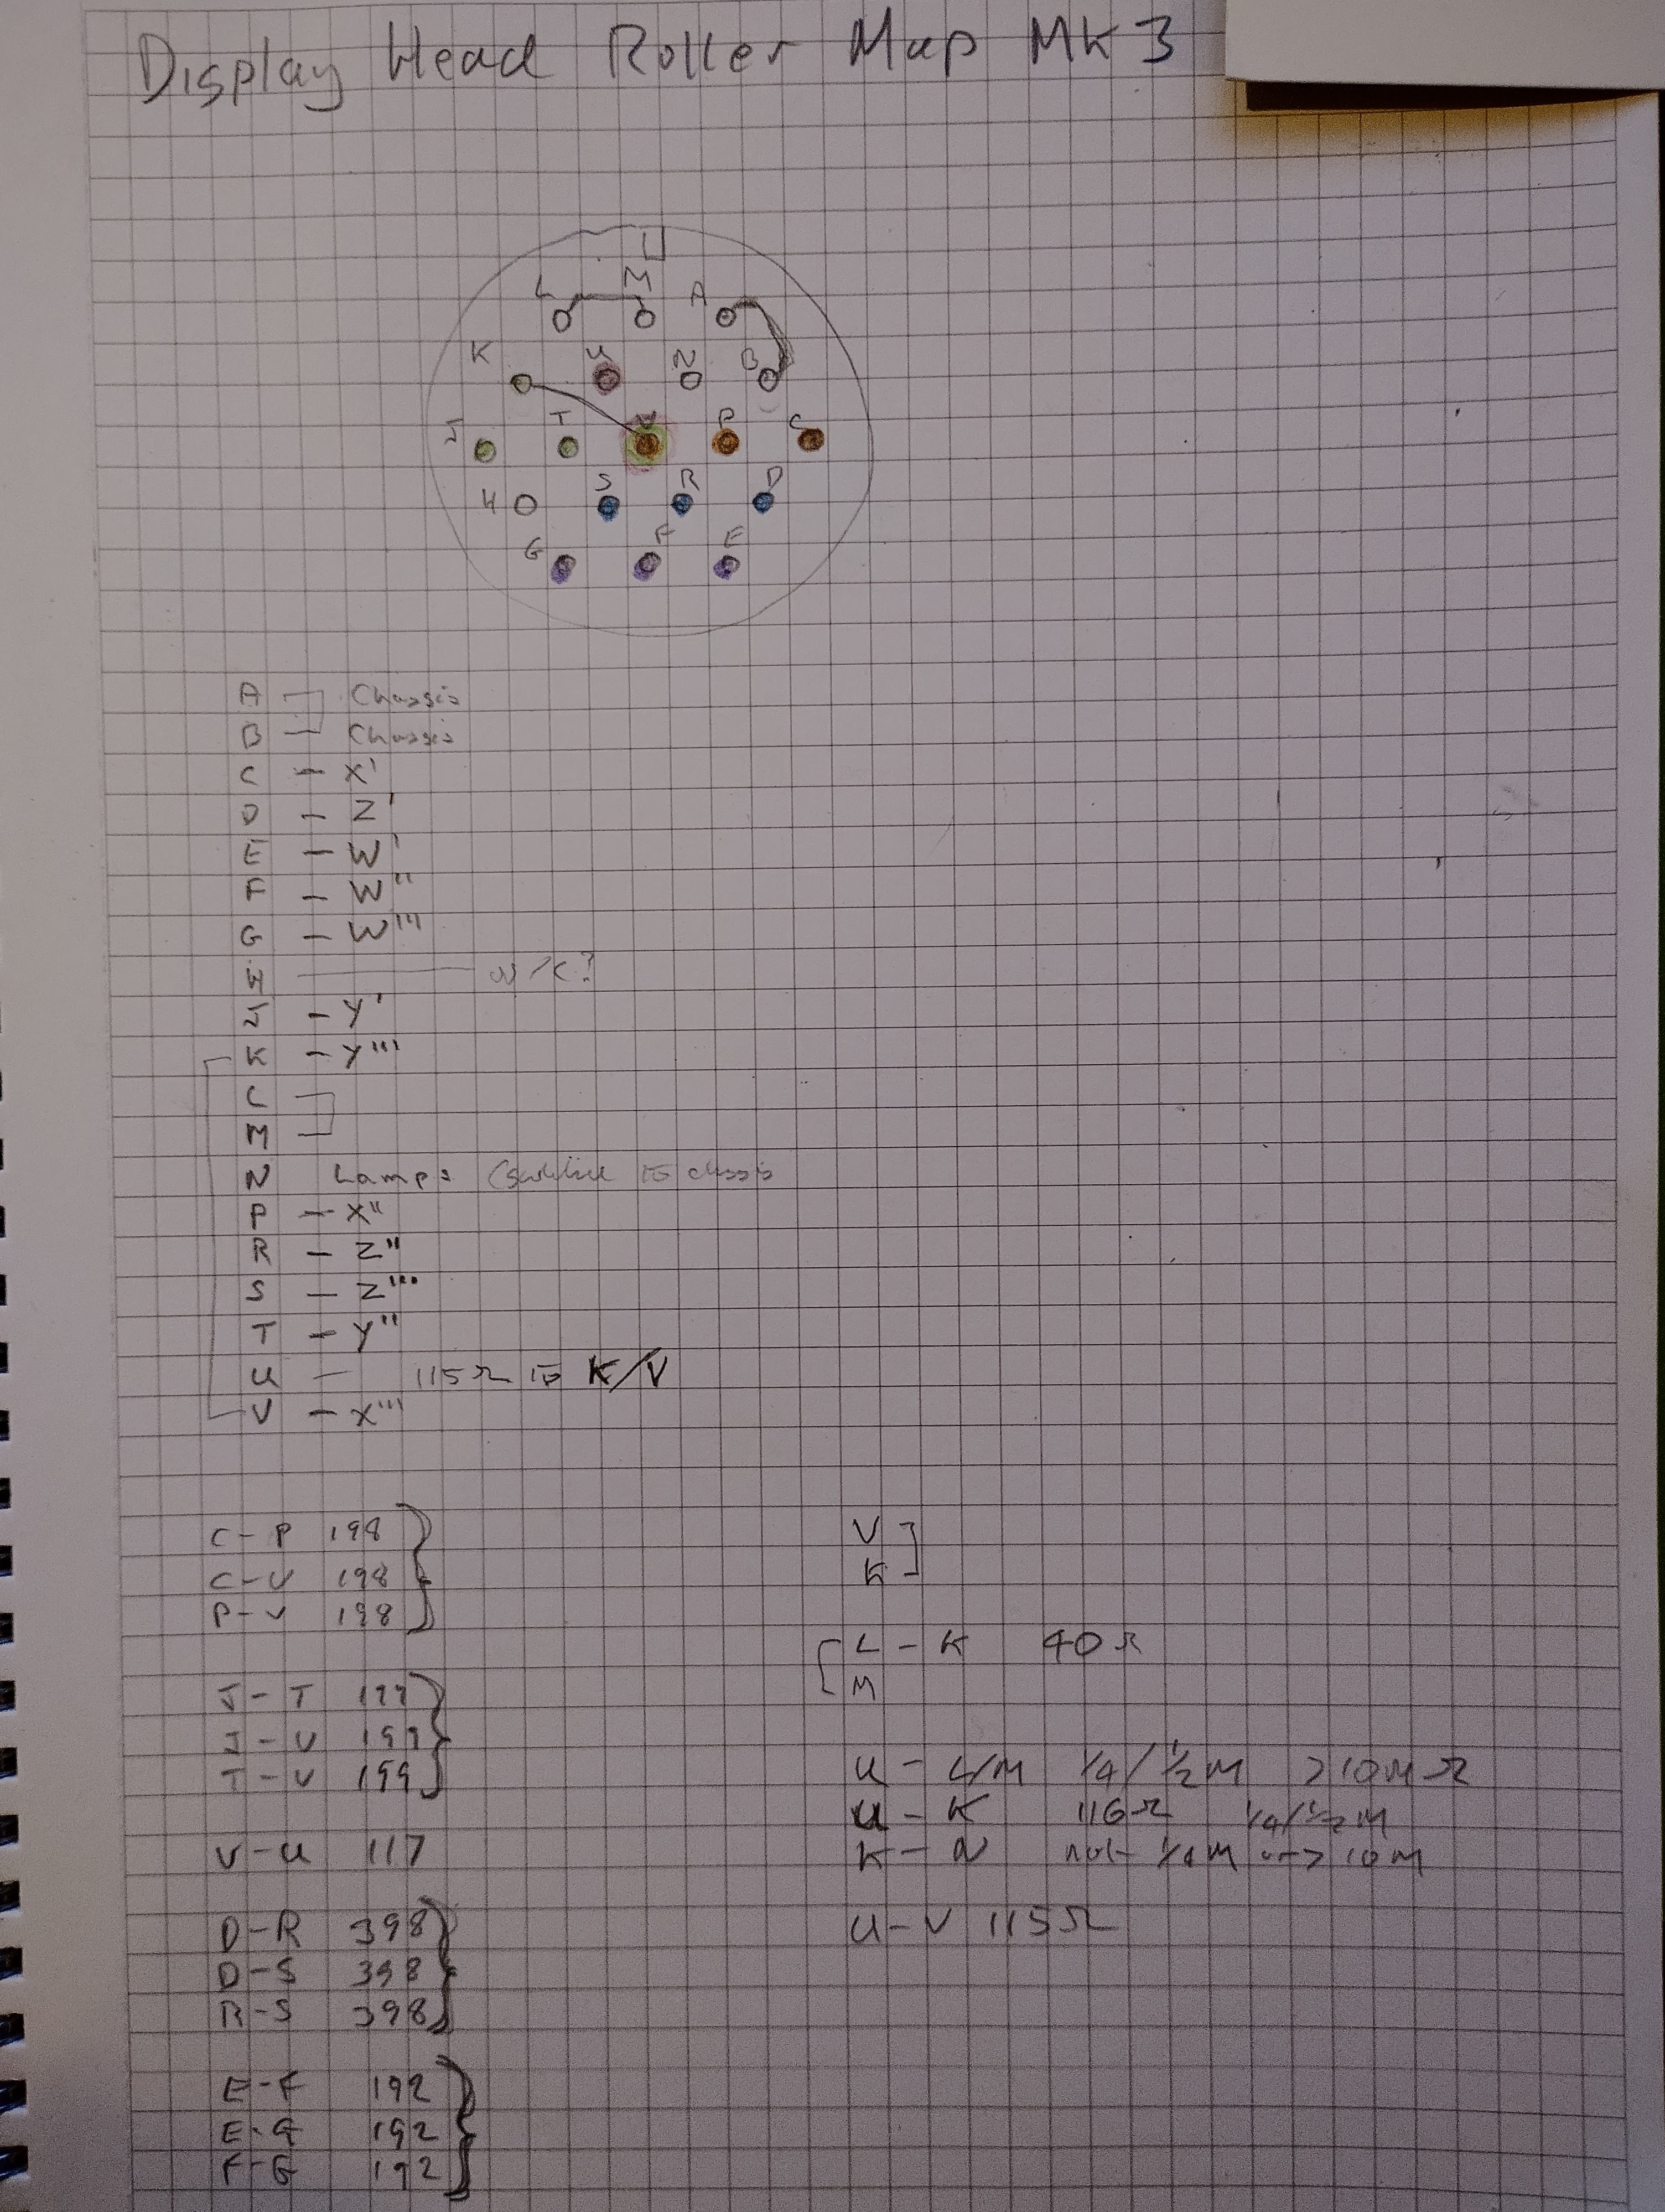 Display Head Roller Map MK 3
L M A
K U N B
J T V P C
H S R D
G F E
A Chassis
B — Chassis
C — X'
D — Z'
E — W'
F — W''
G — W'''
H — N/C?
J — Y'
K — Y'''
L
M —
N Lamps to chassis
P — X''
R — Z''
S — Z'''
T — Y''
U — 115Ω to K/V
V — X'''
C - P 198
C - V 198
P - V 198
J - T 199
J - V 199
T - V 199
V - U 117
D - R 398
D - S 398
R - S 398
E - F 192
E - G 192
F - G 192
V
K
L - K 40Ω
M
U - L/M 1/4 / 1/2 M >10MΩ
U - K 116Ω 1/4 / 1/2 M
K - N not 1/4 M or > 10M
U - V 115Ω